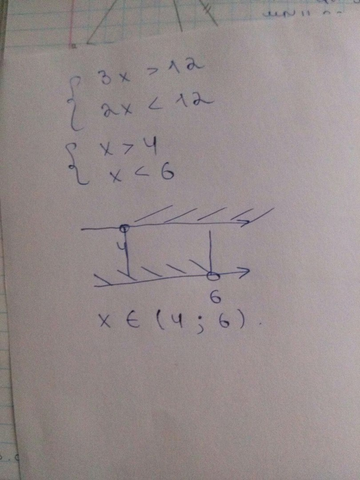 3x > 12
2x < 12
x > 4
x < 6
4
6
x ∈ (4 ; 6).